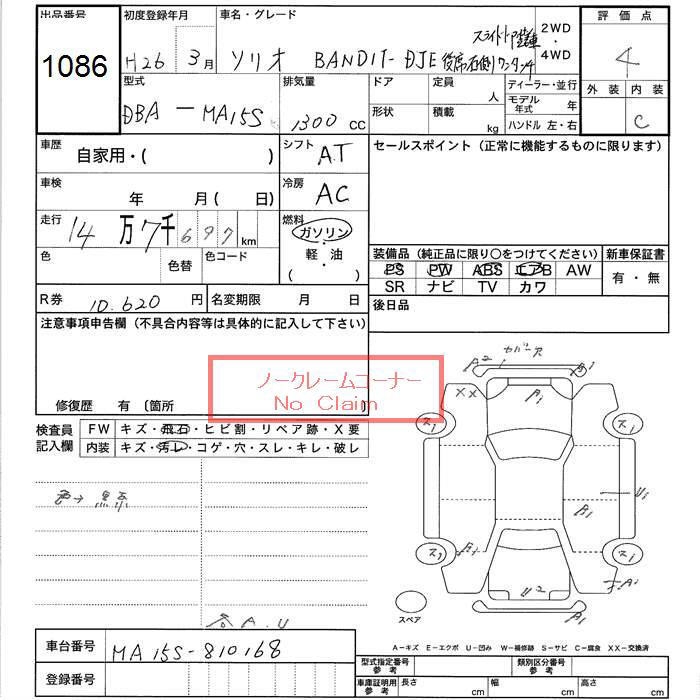 出品番号 初度登録年月 車名・グレード 評価点
1086 H26 3月 ソリオ BANDIT-DJE 後席右側ワンタッチ 2WD・4WD 4
型式 排気量 ドア 定員 人 ディーラー・並行 外装 内装
DBA - MA15S 1300cc 形状 積載 kg モデル年式 年 C
ハンドル 左・右
車歴 自家用・( ) シフト AT セールスポイント (正常に機能するものに限ります)
車検 年 月( 日) 冷房 AC
走行 14万7千697km 燃料 ガソリン・軽油・( )
色 色替 色コード 装備品 (純正品に限り○をつけてください) 新車保証書
PS PW ABS エアB AW 有・無
SR ナビ TV カワ
R券 10,620円 名変期限 月 日 後日品
注意事項申告欄 (不具合内容等は具体的に記入して下さい)
ノークレームコーナー
No Claim
修復歴 有 〔箇所 〕
検査員記入欄 FW キズ・飛石・ヒビ割・リペア跡・X要
内装 キズ・汚レ・コゲ・穴・スレ・キレ・破レ
色→黒系
各A.U
A2 カバー欠 B1
XX A1
ス1 ス1
U1
B1
ス1 B1 ス1
U2
B1
スペア
A-キズ E-エクボ U-凹み W-補修跡 S-サビ C-腐食 XX-交換済
車台番号 MA15S-810168
登録番号
型式指定番号 参考 類別区分番号 参考
車庫証明用 参考 長さ cm 幅 cm 高さ cm